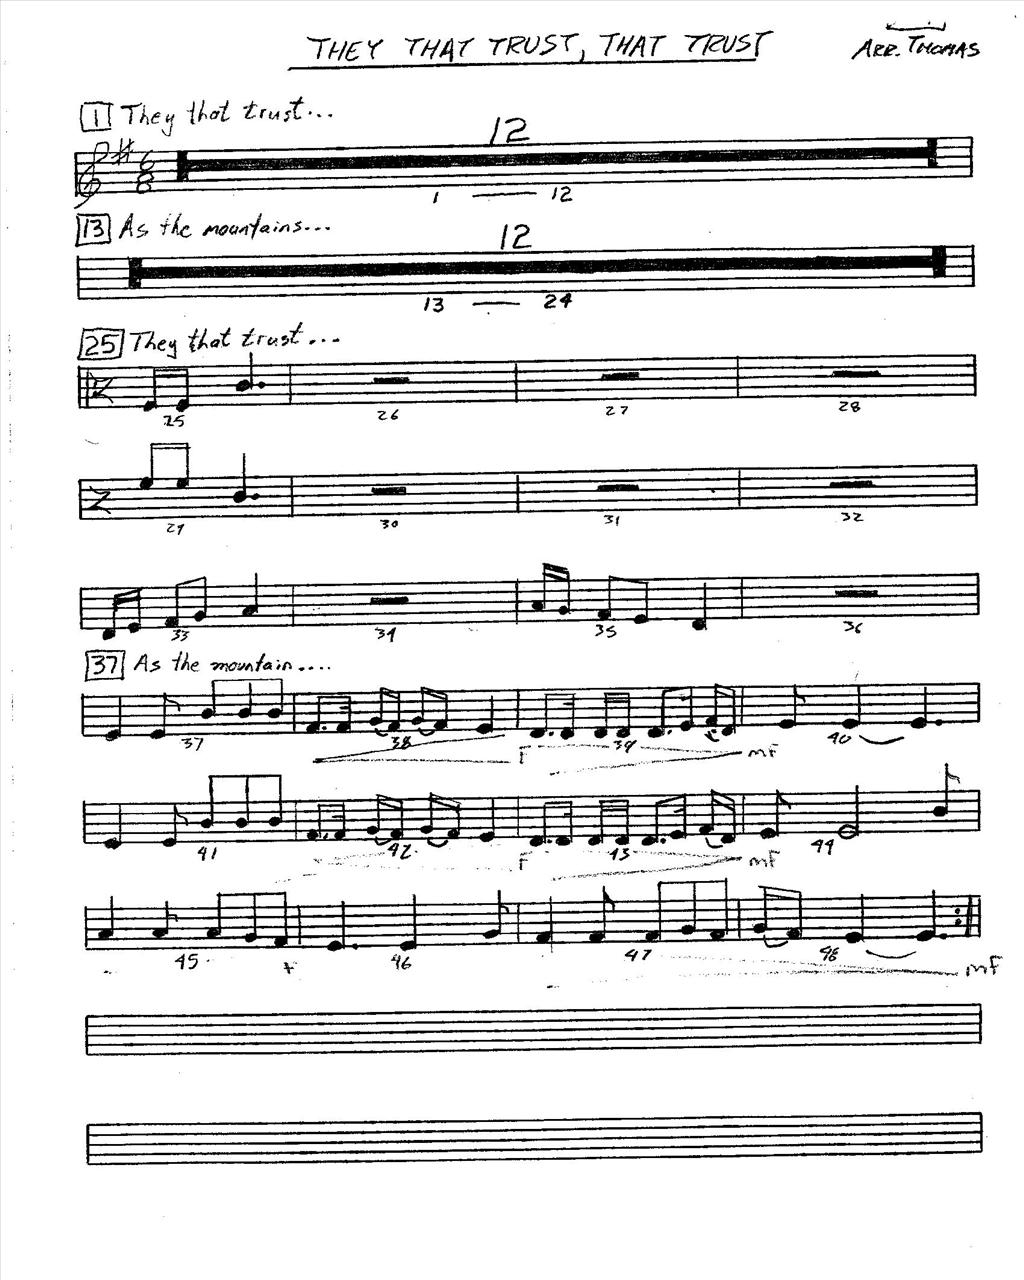 THEY THAT TRUST, THAT TRUST
ARR. THOMAS
1 They that trust...
12
6
8
1 — 12
13 As the mountains...
12
13 — 24
25 They that trust...
25 26 27 28
29 30 31 32
33 34 35 36
37 As the mountain....
37 38 39 40
F mF
41 42 43 44
F mF
45 46 47 48
mF